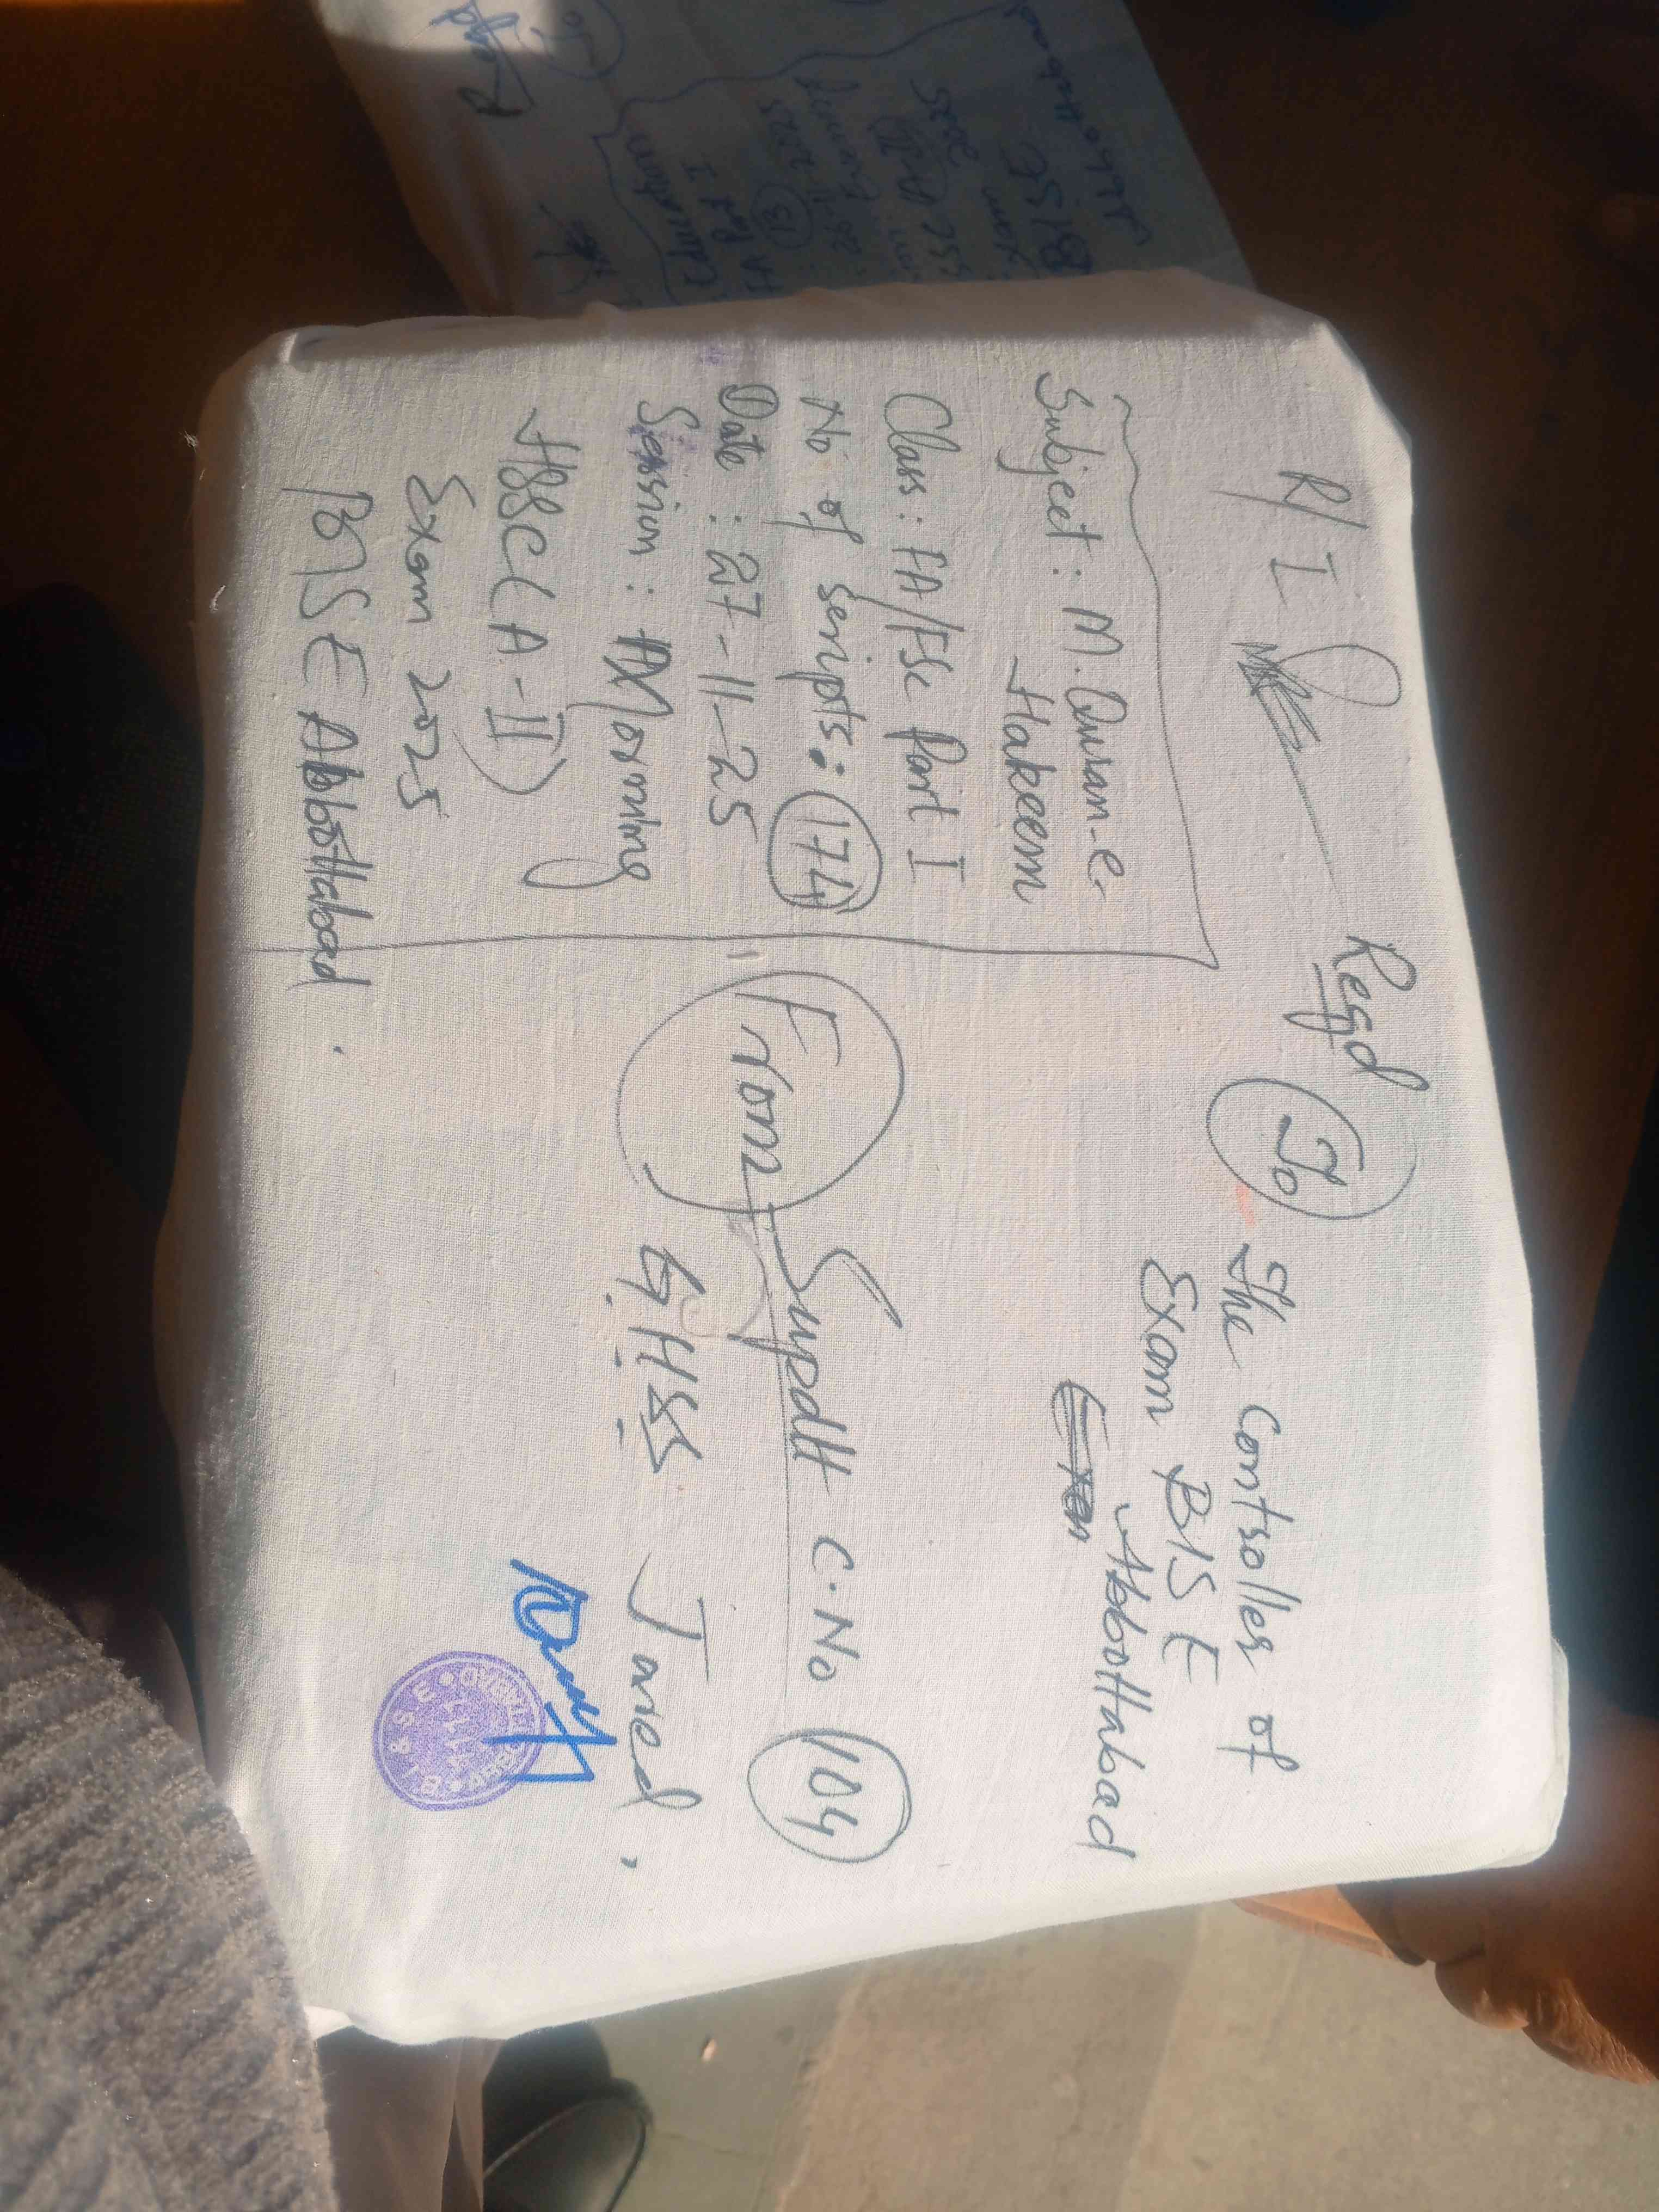 R/I
Regd
To The Controller of
Exam BISE
Abbottabad
Subject: M. Quran-e-
Hakeem
Class: FA/FSc Part I
No of scripts: 174
Date: 27-11-25
Session: Morning
HSSC (A-II)
Exam 2025
BISE Abbottabad.
From Supdtt C.No 104
G.HSS Jared.